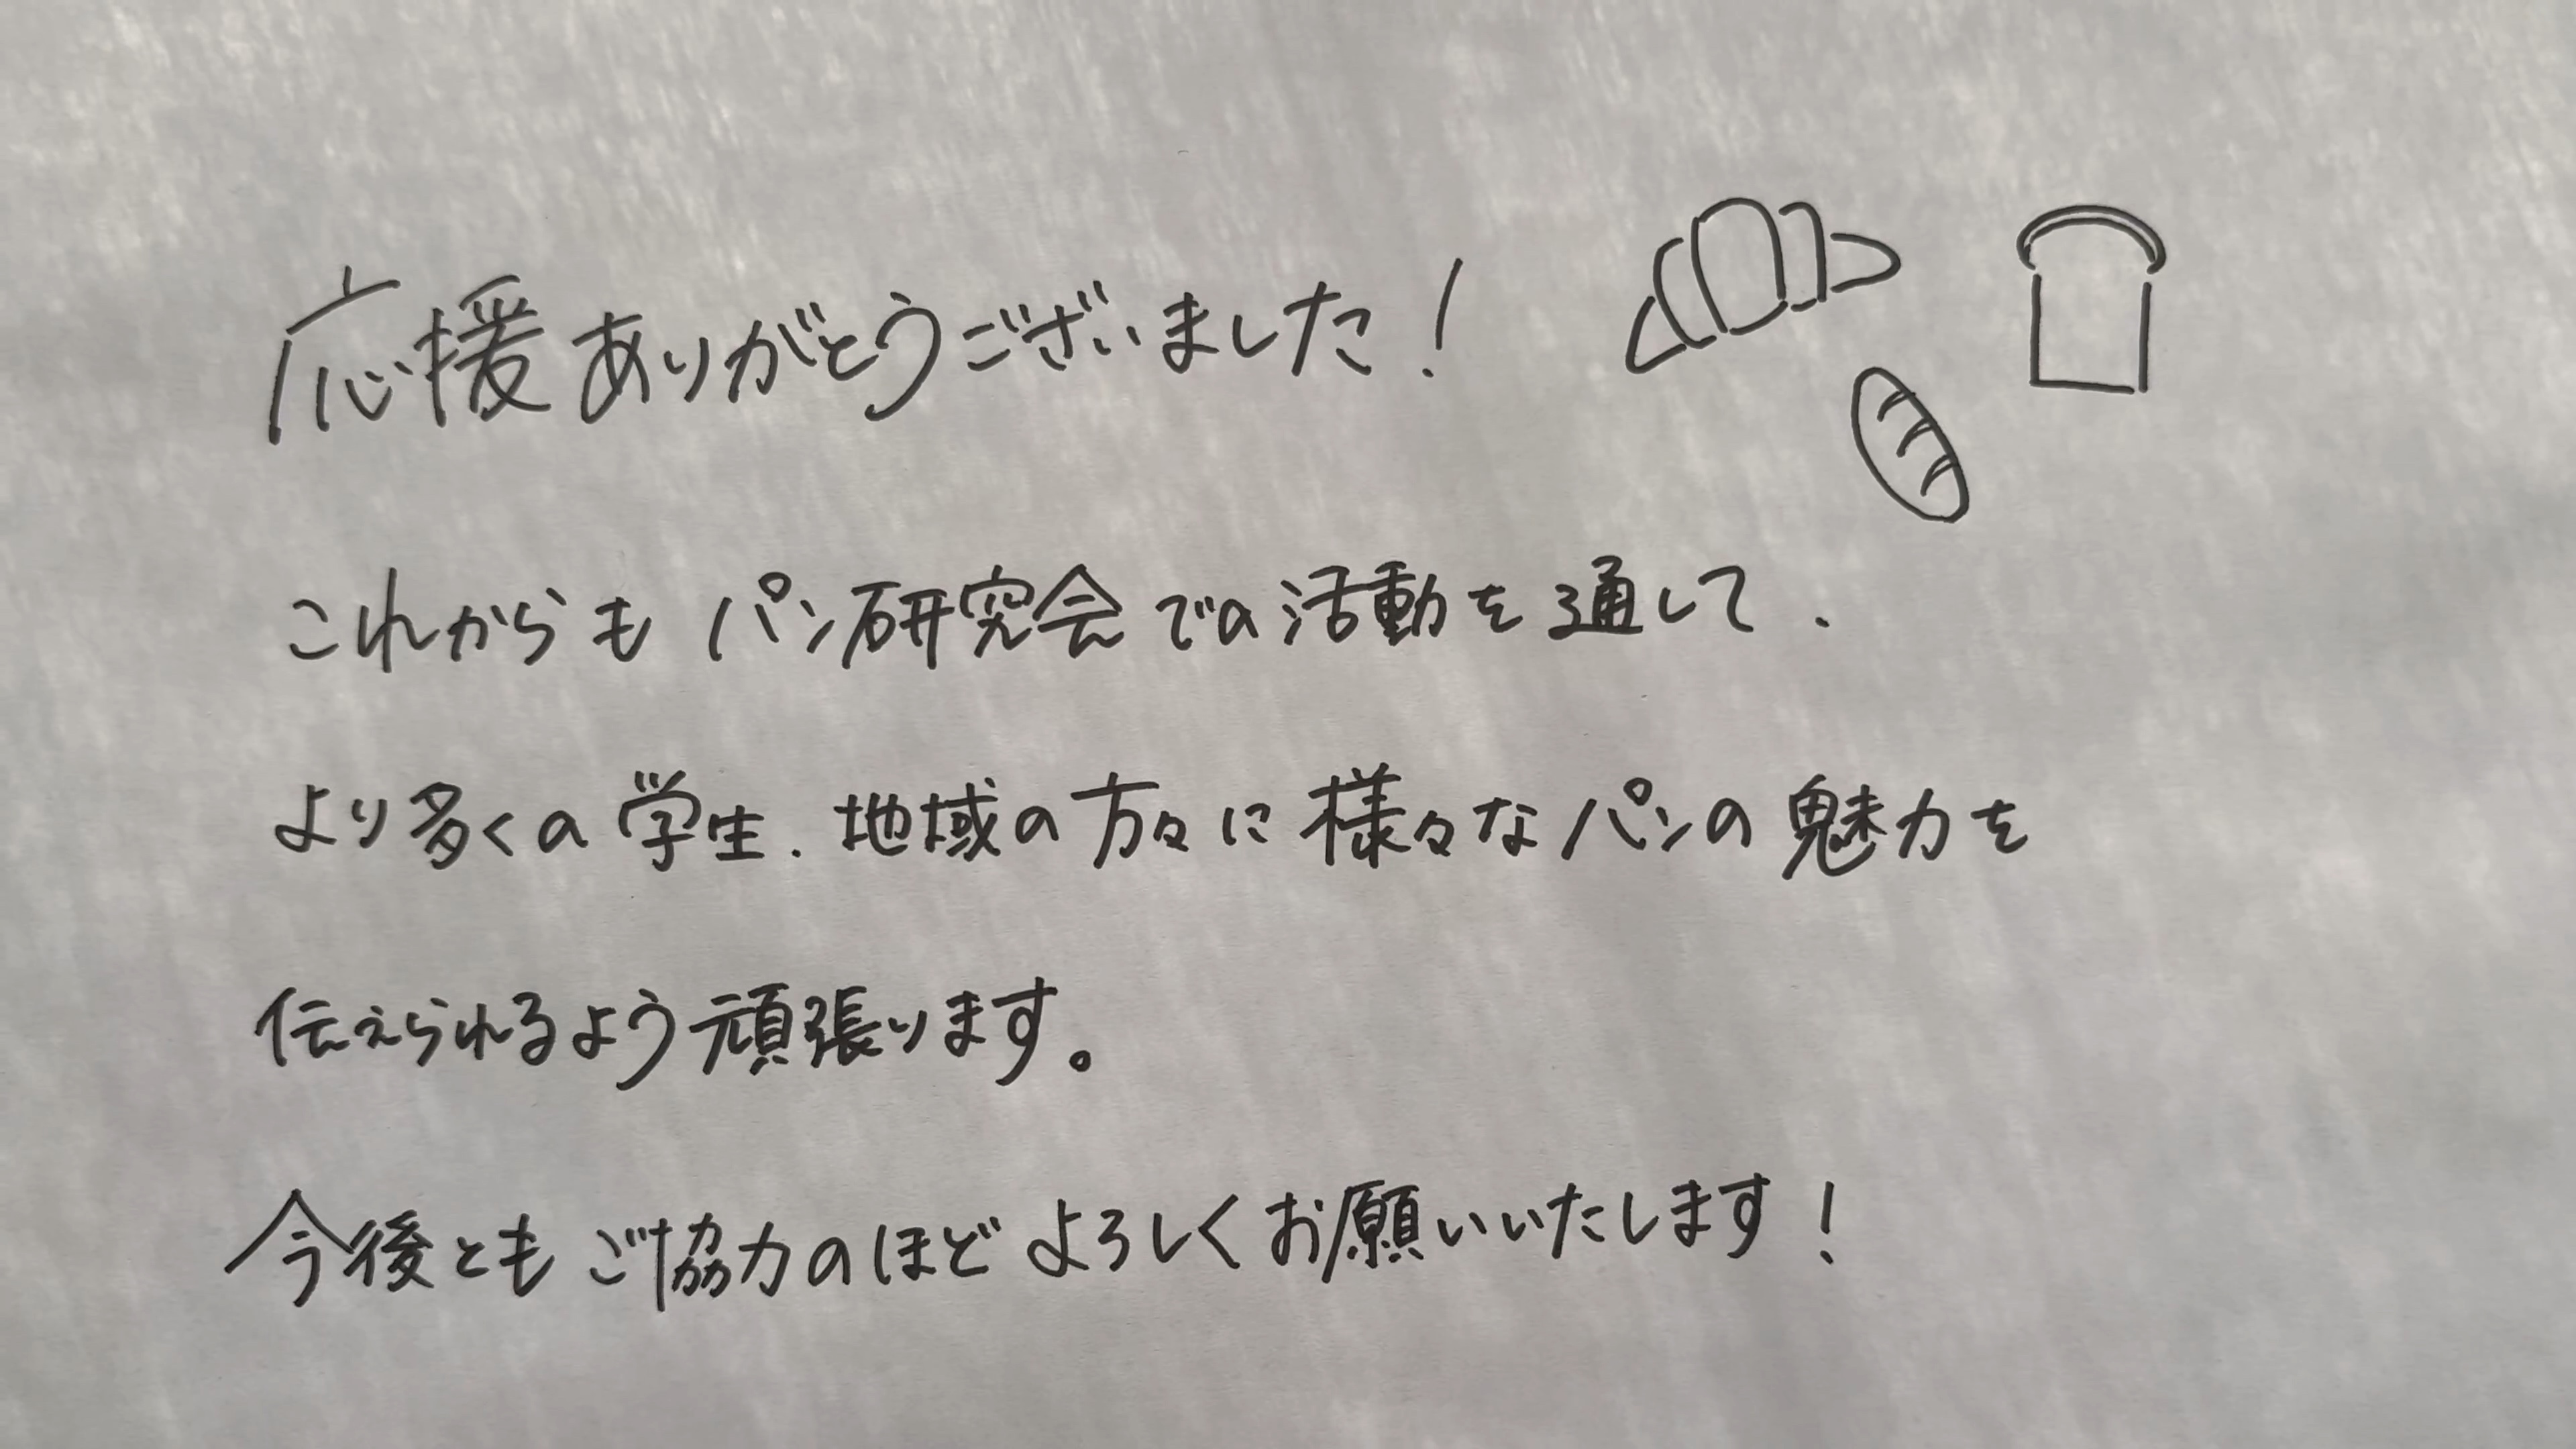 応援ありがとうございました！
これからも パン研究会での活動を通して、
より多くの学生、地域の方々に様々なパンの魅力を
伝えられるよう頑張ります。
今後とも ご協力のほど よろしくお願いいたします！